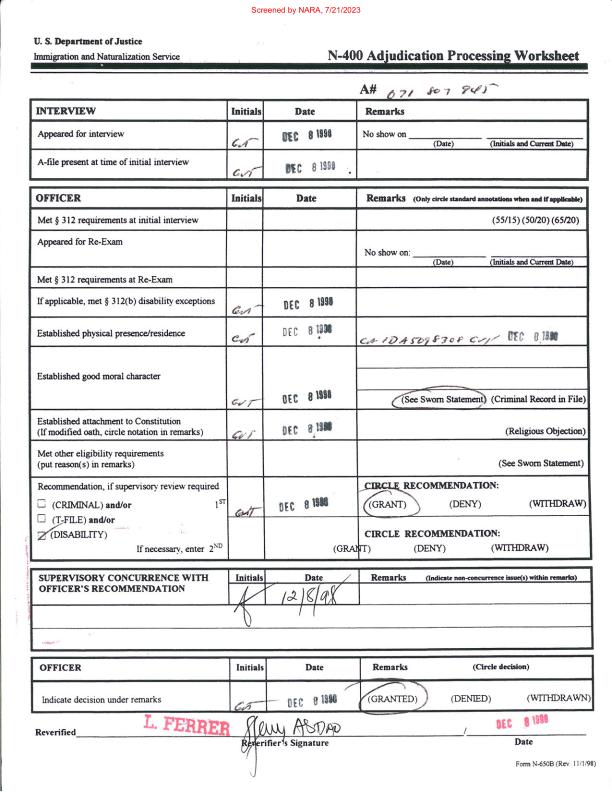 Screened by NARA, 7/21/2023
U. S. Department of Justice
Immigration and Naturalization Service N-400 Adjudication Processing Worksheet
A# 071 807 845
INTERVIEW Initials Date Remarks
Appeared for interview DEC 8 1998 No show on
(Date) (Initials and Current Date)
A-file present at time of initial interview DEC 8 1998
OFFICER Initials Date Remarks (Only circle standard annotations when and if applicable)
Met § 312 requirements at initial interview (55/15) (50/20) (65/20)
Appeared for Re-Exam
No show on:
(Date) (Initials and Current Date)
Met § 312 requirements at Re-Exam
If applicable, met § 312(b) disability exceptions DEC 8 1998
Established physical presence/residence DEC 8 1998 DEC 8 1998
Established good moral character DEC 8 1998 (See Sworn Statement) (Criminal Record in File)
Established attachment to Constitution
(If modified oath, circle notation in remarks) DEC 8 1998 (Religious Objection)
Met other eligibility requirements
(put reason(s) in remarks) (See Sworn Statement)
Recommendation, if supervisory review required CIRCLE RECOMMENDATION:
(CRIMINAL) and/or 1ST DEC 8 1998 (GRANT) (DENY) (WITHDRAW)
(T-FILE) and/or
(DISABILITY) CIRCLE RECOMMENDATION:
If necessary, enter 2ND (GRANT) (DENY) (WITHDRAW)
SUPERVISORY CONCURRENCE WITH OFFICER'S RECOMMENDATION Initials Date Remarks (Indicate non-concurrence issue(s) within remarks)
12/8/98
OFFICER Initials Date Remarks (Circle decision)
Indicate decision under remarks DEC 8 1998 (GRANTED) (DENIED) (WITHDRAWN)
Reverified L. FERRER / DEC 8 1998
Reverifier's Signature Date
Form N-650B (Rev. 11/1/98)